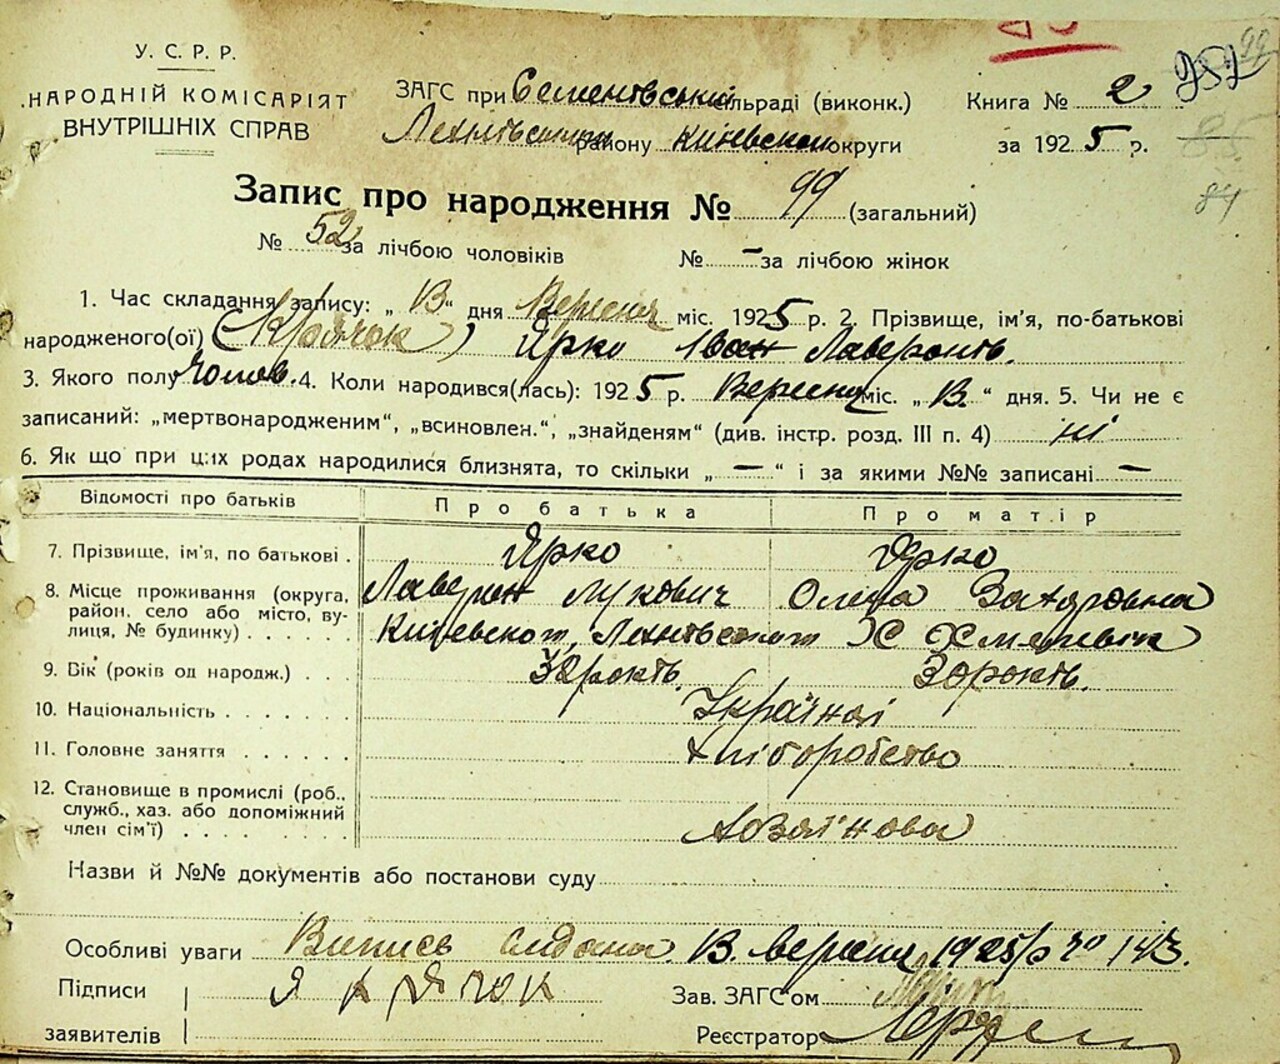 У. С. Р. Р.
НАРОДНІЙ КОМІСАРІЯТ
ВНУТРІШНІХ СПРАВ
ЗАГС при Семенівській сільраді (виконк.)
району Київської округи
Книга № 2
за 1925 р.
99
85.
84
Запис про народження № 99 (загальний)
№ 52 за лічбою чоловіків № – за лічбою жінок
1. Час складання запису: „ 13 “ дня Вересня міс. 1925 р. 2. Прізвище, ім'я, по-батькові
народженого(ої) (Крячок) Ярко Іван Лаверонть.
3. Якого полу Чолов. 4. Коли народився(лась): 1925 р. Вересня міс. „ 13. “ дня. 5. Чи не є
записаний: „мертвонародженим“, „всиновлен.“, „знайденям“ (див. інстр. розд. III п. 4) ні
6. Як що при цих родах народилися близнята, то скільки „ – “ і за якими №№ записані –
Відомості про батьків Про батька Про матір
7. Прізвище, ім'я, по батькові . Ярко Ярко
Лаверон Лукович Олена Захаровна
8. Місце проживання (округа, район, село або місто, вулиця, № будинку) . . . . . .
9. Вік (років од народж.) . . . 32 рокть. 30 рокть.
10. Національність . . . . . . . Українці
11. Головне заняття . . . . . . Хліборобство
12. Становище в промислі (роб., служб., хаз. або допоміжний член сім'ї) . . . . . . . .
Назви й №№ документів або постанови суду
Особливі уваги Випись видана. 13. вересня 1925 р № 143.
Підписи Я Крячок Зав. ЗАГС'ом
заявителів Реєстратор